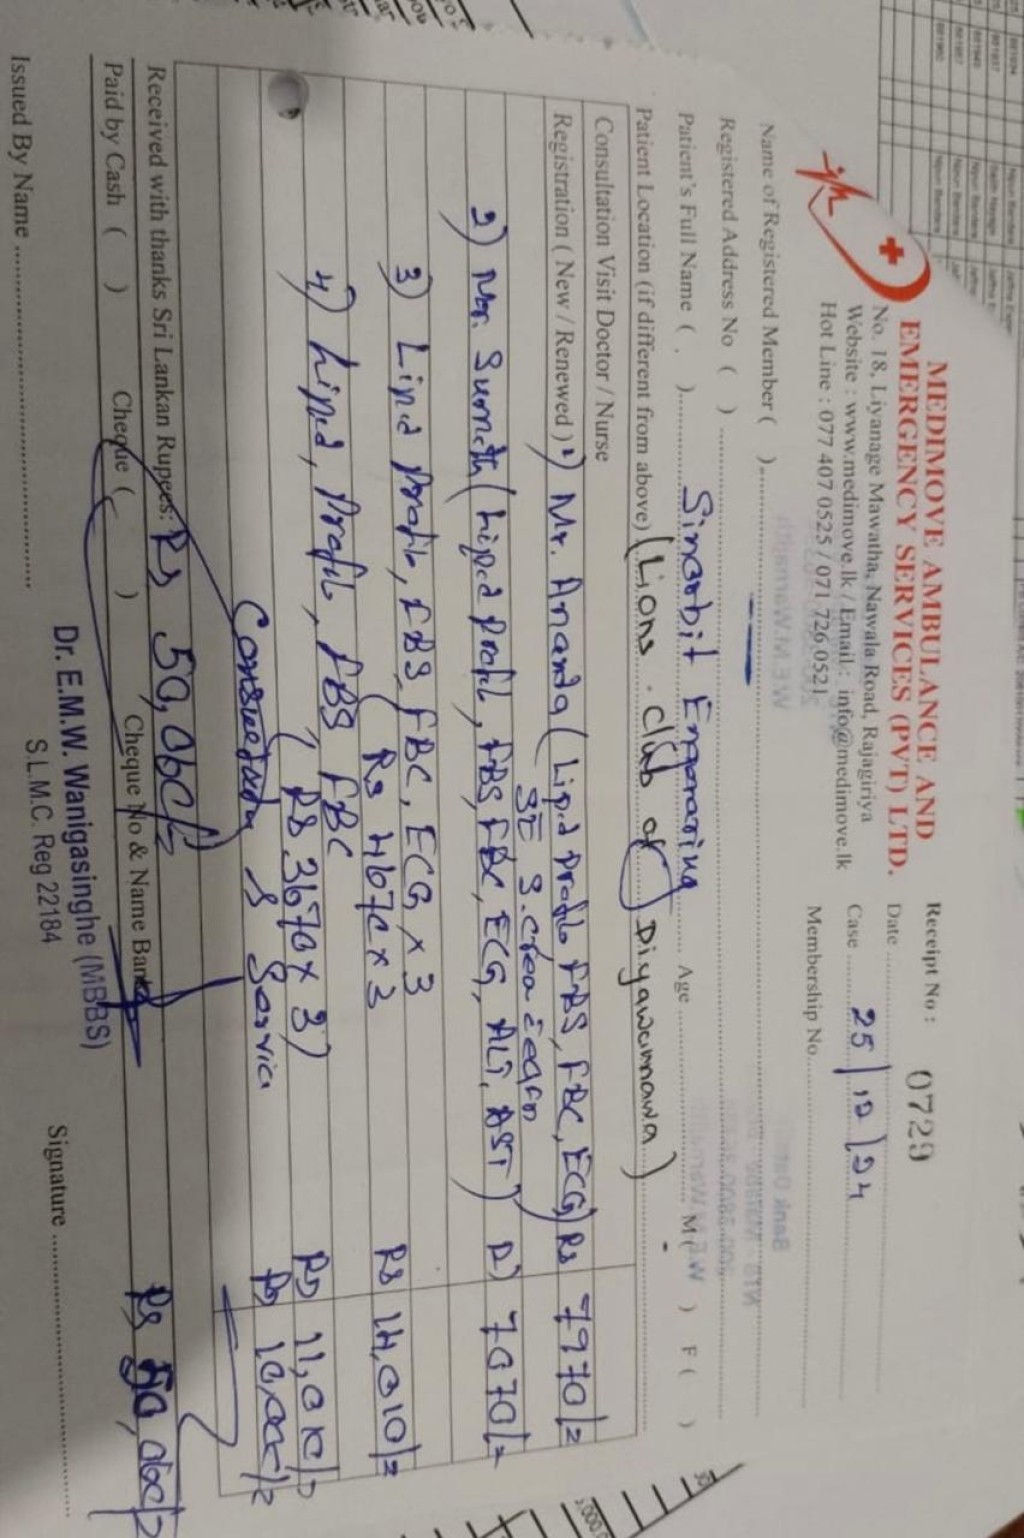 MEDIMOVE AMBULANCE AND
EMERGENCY SERVICES (PVT) LTD.
No. 18, Liyanage Mawatha, Nawala Road, Rajagiriya
Website : www.medimove.lk / Email : info@medimove.lk
Hot Line : 077 407 0525 / 071 726 0521
Receipt No : 0729
Date
Case 25/10/24
Membership No
Name of Registered Member ( )
Registered Address No ( )
Patient's Full Name ( ) Sinorbit Age M ( ) F ( )
Patient Location (if different from above) (Lions club of Diyawannawa)
Consultation Visit Doctor / Nurse
Registration ( New / Renewed ) 1) Mr. Ananda ( Lipid Profile FBS, FBC, ECG) Rs 7970/=
SE S.crea eGFR
2) Mr. Sumith ( Lipid Profil, FBS, FBC, ECG, ALT, AST ) Rs 7070/=
3) Lipid Profile, FBS, FBC, ECG x 3
Rs 4670 x 3 Rs 14,010/=
4) Lipid, Profile, FBS FBC
( Rs 3670 x 3) Rs 11,010/=
& Service Rs 10,000/=
Received with thanks Sri Lankan Rupees: Rs 50,060/= Rs 50,060/=
Paid by Cash ( ) Cheque ( ) Cheque No & Name Bank
Dr. E.M.W. Wanigasinghe (MBBS)
S.L.M.C. Reg 22184
Issued By Name Signature